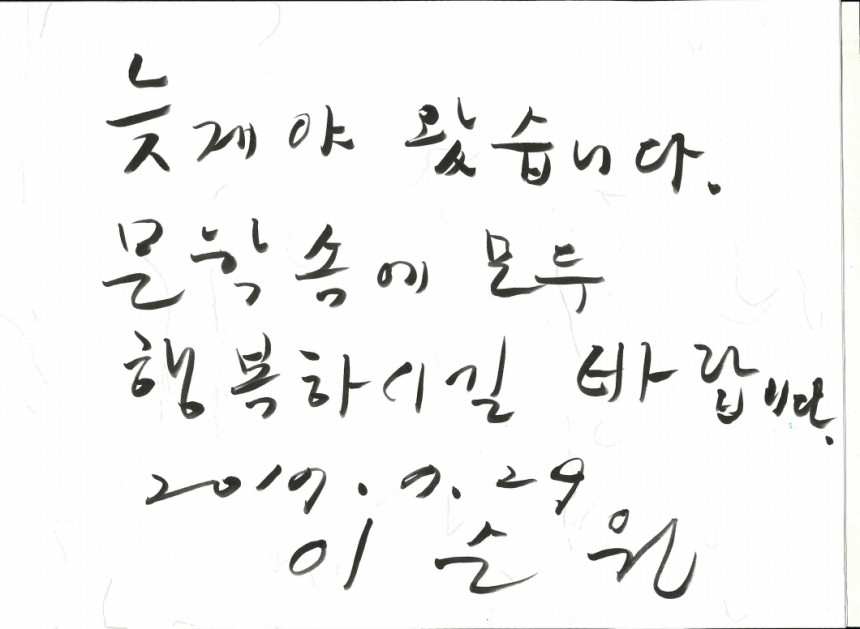 늦게야 왔습니다.
문학 속에 모두
행복하시길 바랍니다.
이순원